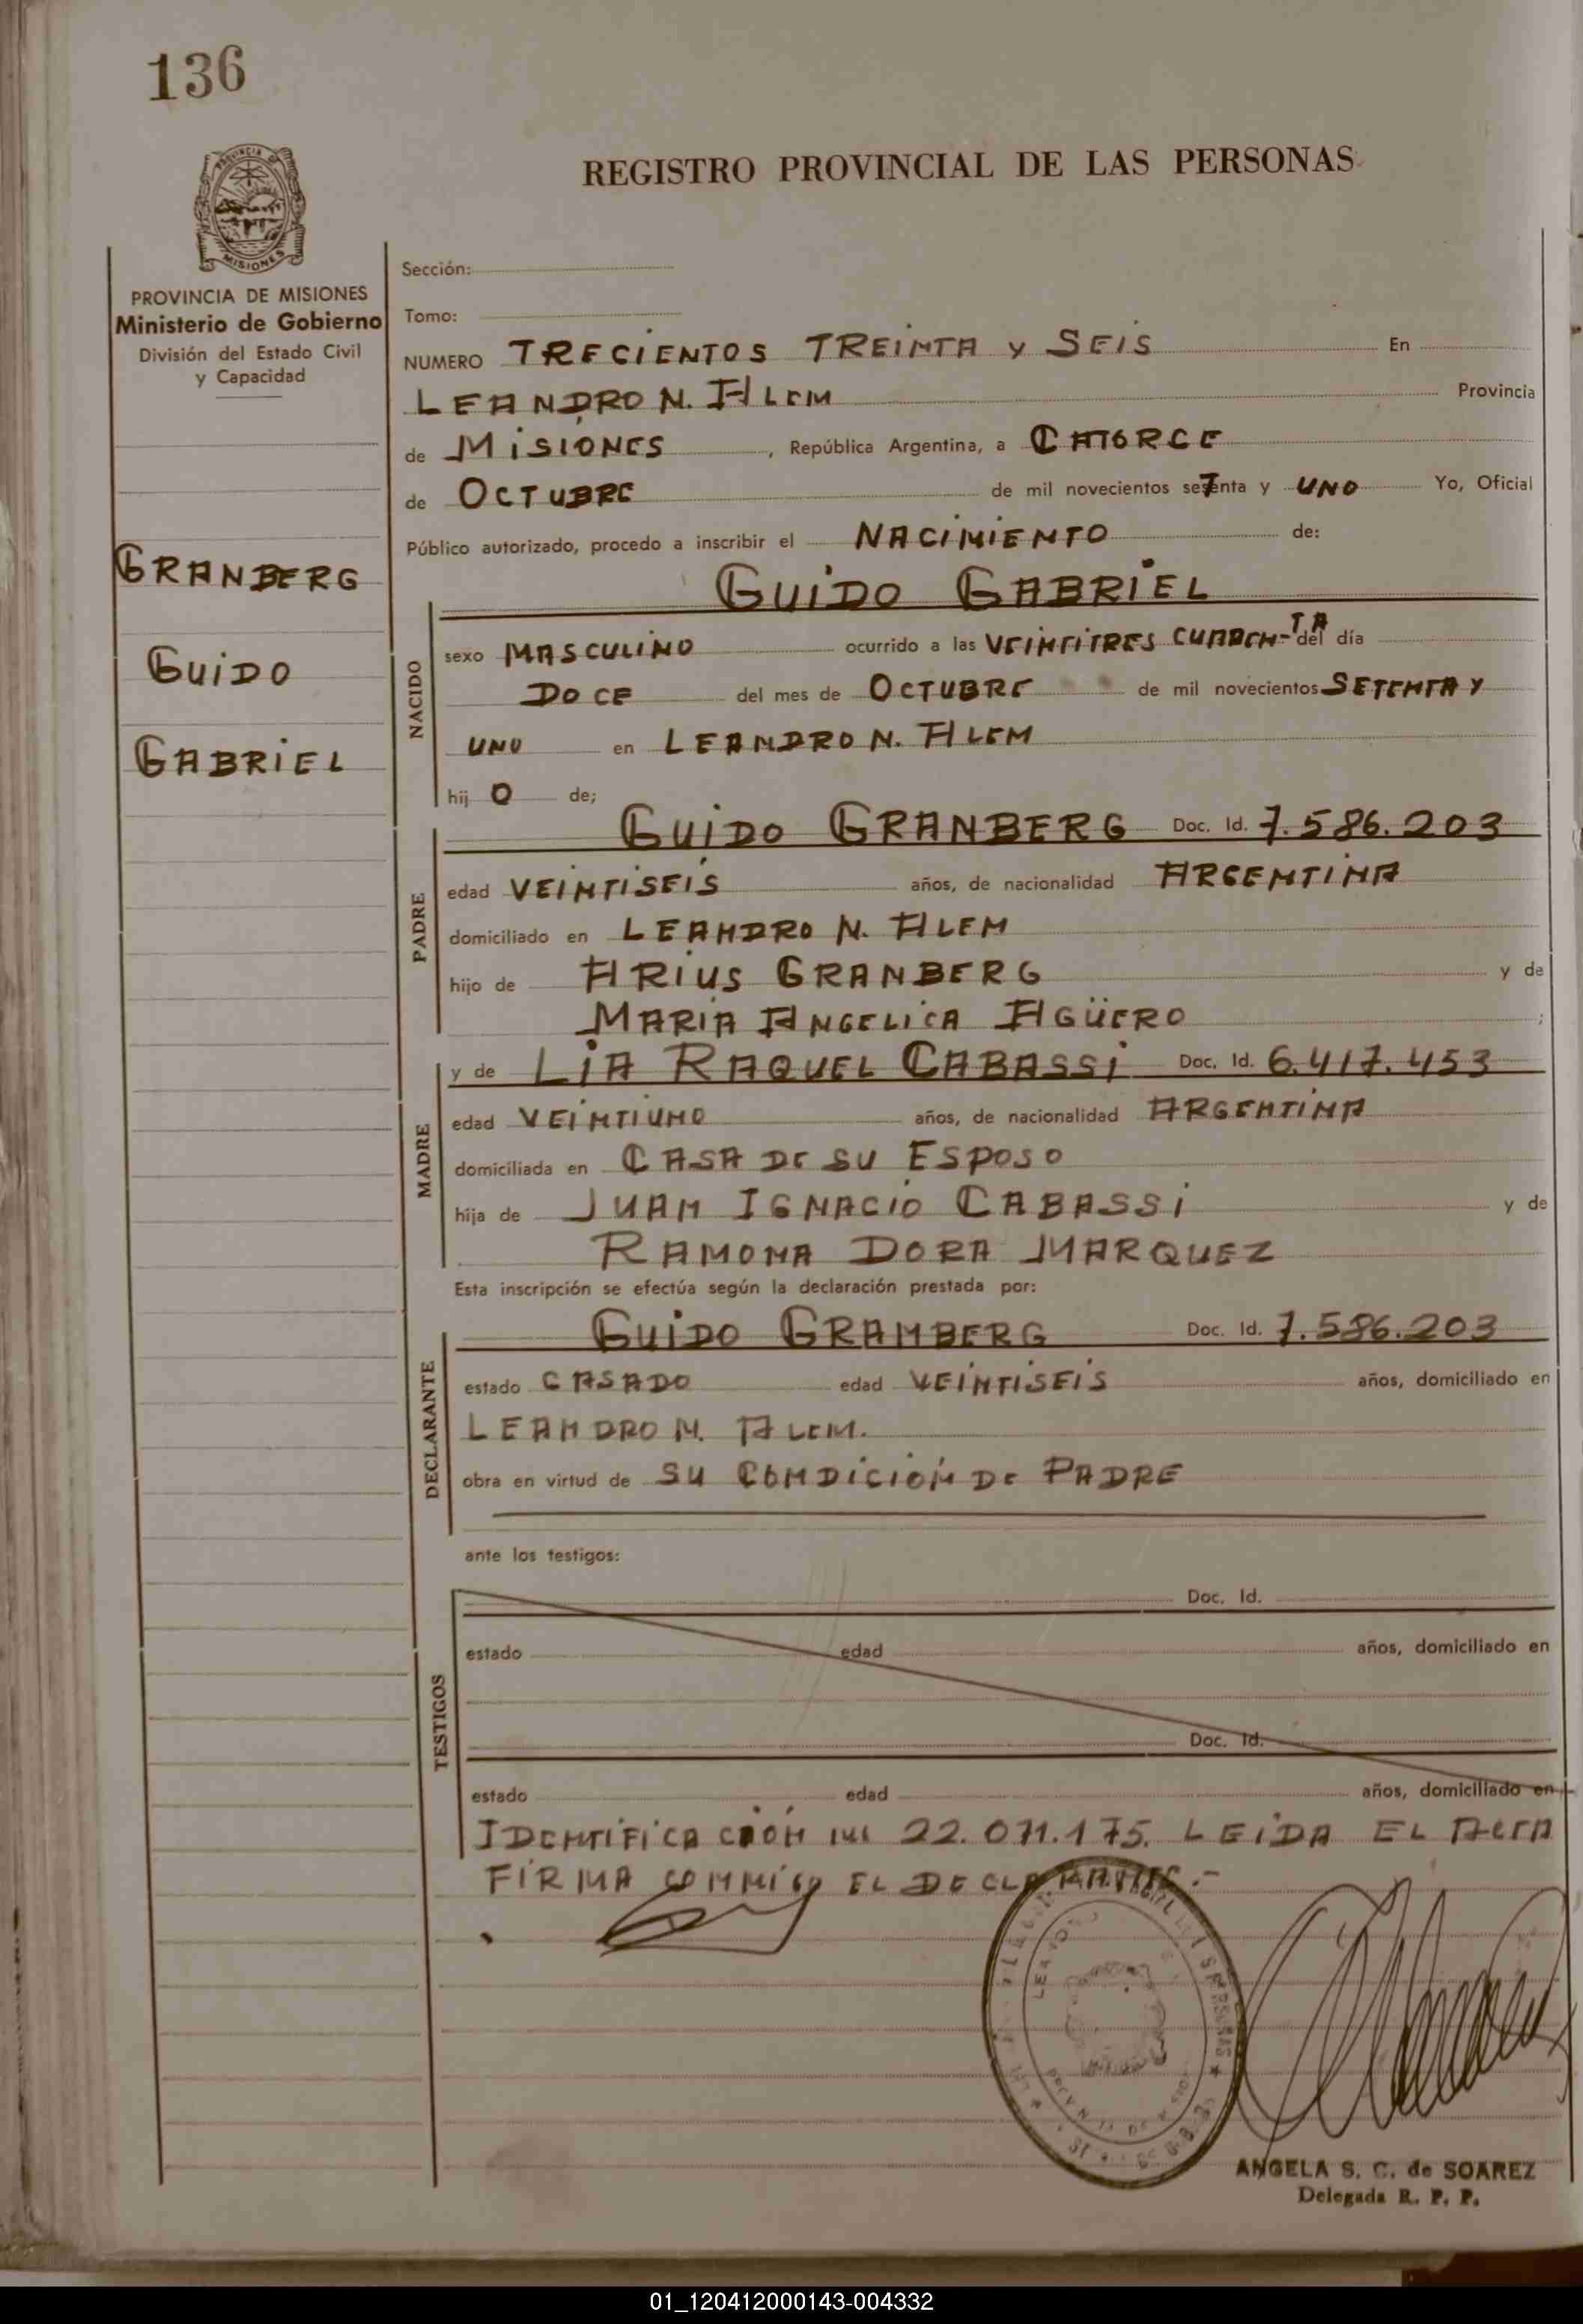 136
REGISTRO PROVINCIAL DE LAS PERSONAS
PROVINCIA DE
MISIONES
PROVINCIA DE MISIONES
Ministerio de Gobierno
División del Estado Civil
y Capacidad
GRANBERG
GUIDO
GABRIEL
Sección:
Tomo:
NUMERO TRECIENTOS TREINTA Y SEIS En
LEANDRO N. ALEM Provincia
de MISIONES, República Argentina, a CATORCE
de OCTUBRE de mil novecientos setenta y UNO Yo, Oficial
Público autorizado, procedo a inscribir el NACIMIENTO de:
GUIDO GABRIEL
NACIDO
sexo MASCULINO ocurrido a las VEINTITRES CUAREN-TA del día
DOCE del mes de OCTUBRE de mil novecientos SETENTA Y
UNO en LEANDRO N. ALEM
hij O de;
PADRE
GUIDO GRANBERG Doc. Id. 7.586.203
edad VEINTISEIS años, de nacionalidad ARGENTINA
domiciliado en LEANDRO N. ALEM
hijo de ARIUS GRANBERG y de
MARIA ANGELICA AGÜERO ;
MADRE
y de LIA RAQUEL CABASSI Doc. Id. 6.417.453
edad VEINTIUNO años, de nacionalidad ARGENTINA
domiciliada en CASA DE SU ESPOSO
hija de JUAN IGNACIO CABASSI y de
RAMONA DORA MARQUEZ
Esta inscripción se efectúa según la declaración prestada por:
DECLARANTE
GUIDO GRANBERG Doc. Id. 7.586.203
estado CASADO edad VEINTISEIS años, domiciliado en
LEANDRO N. ALEM.
obra en virtud de SU CONDICION DE PADRE
ante los testigos:
TESTIGOS
Doc. Id.
estado edad años, domiciliado en
Doc. Id.
estado edad años, domiciliado en
IDENTIFICACION 22.071.175. LEIDA EL ACTA
FIRMA CONMIGO EL DECLARANTE.-
ANGELA S. C. de SOAREZ
Delegada R. P. P.
01_120412000143-004332